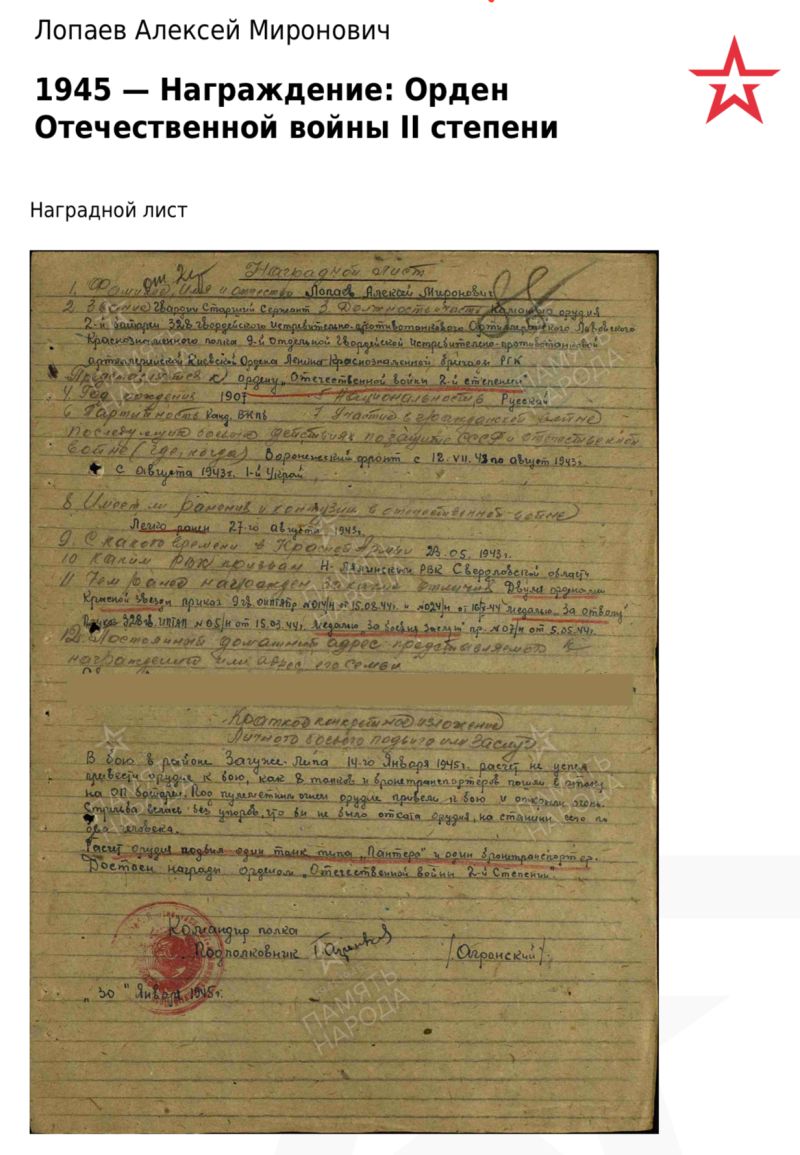 Лопаев Алексей Миронович
1945 — Награждение: Орден
Отечественной войны II степени
Наградной лист
Наградной лист
1. Фамилия, Имя и отчество Лопаев Алексей Миронович
2. Звание Гвардии Старший Сержант 3. Должность, часть Командир орудия
2-й батареи 328 гвардейского истребительно-противотанкового Артиллерийского Львовского
Краснознаменного полка 9-й отдельной Гвардейской истребительно-противотанковой
артиллерийской Киевской Ордена Ленина Краснознаменной бригады РГК
Представляется к ордену „Отечественной войны 2-й степени"
4. Год рождения 1907 5. Национальность Русский
6 Партийность Канд. ВКПб 7. Участие в гражданской войне
последующих боевых действиях по защите СССР и отечественной
войне (где, когда) Воронежский фронт с 12.VII.43 по август 1943г.
с августа 1943г. 1-й Украй
8 Имеет ли ранения и контузии в отечественной войне
Легко ранен 27-го августа 1943г.
9. С какого времени в Красной Армии 23.05.1943г.
10 Каким РВК призван Н-Лялинским РВК Свердловской области
11 Чем ранее награжден за какие отличия Двумя орденами
Красной звезды приказ №014/н от 15.08.44г. и №024/н медалью „За отвагу"
Приказ №05/н от 15.03.44г. Медалью „За боевые заслуги" пр. №07/н от 5.05.44г.
12. Постоянный домашний адрес представляемого к
награждению или адрес его семьи
Краткое конкретное изложение
Личного боевого подвига или заслуг
В бою в районе Загуже-Липа 14-го Января 1945г. расчет не успел
привести орудие к бою, как 8 танков и бронетранспортеров пошли в атаку
на ОП батареи. Под пулеметным огнем орудие привели к бою и открыли огонь.
Стрельба велась без упоров, что бы не было отката орудия, на станины село по
два человека.
Расчет орудия подбил один танк типа „Пантера" и один бронетранспортер.
Достоин награды орденом „Отечественной войны 2-й Степени".
Командир полка
Подполковник /Агронский/
„30" Января 1945г.
ПАМЯТЬ
НАРОДА
ПАМЯТЬ
НАРОДА
ПАМЯТЬ
НАРОДА